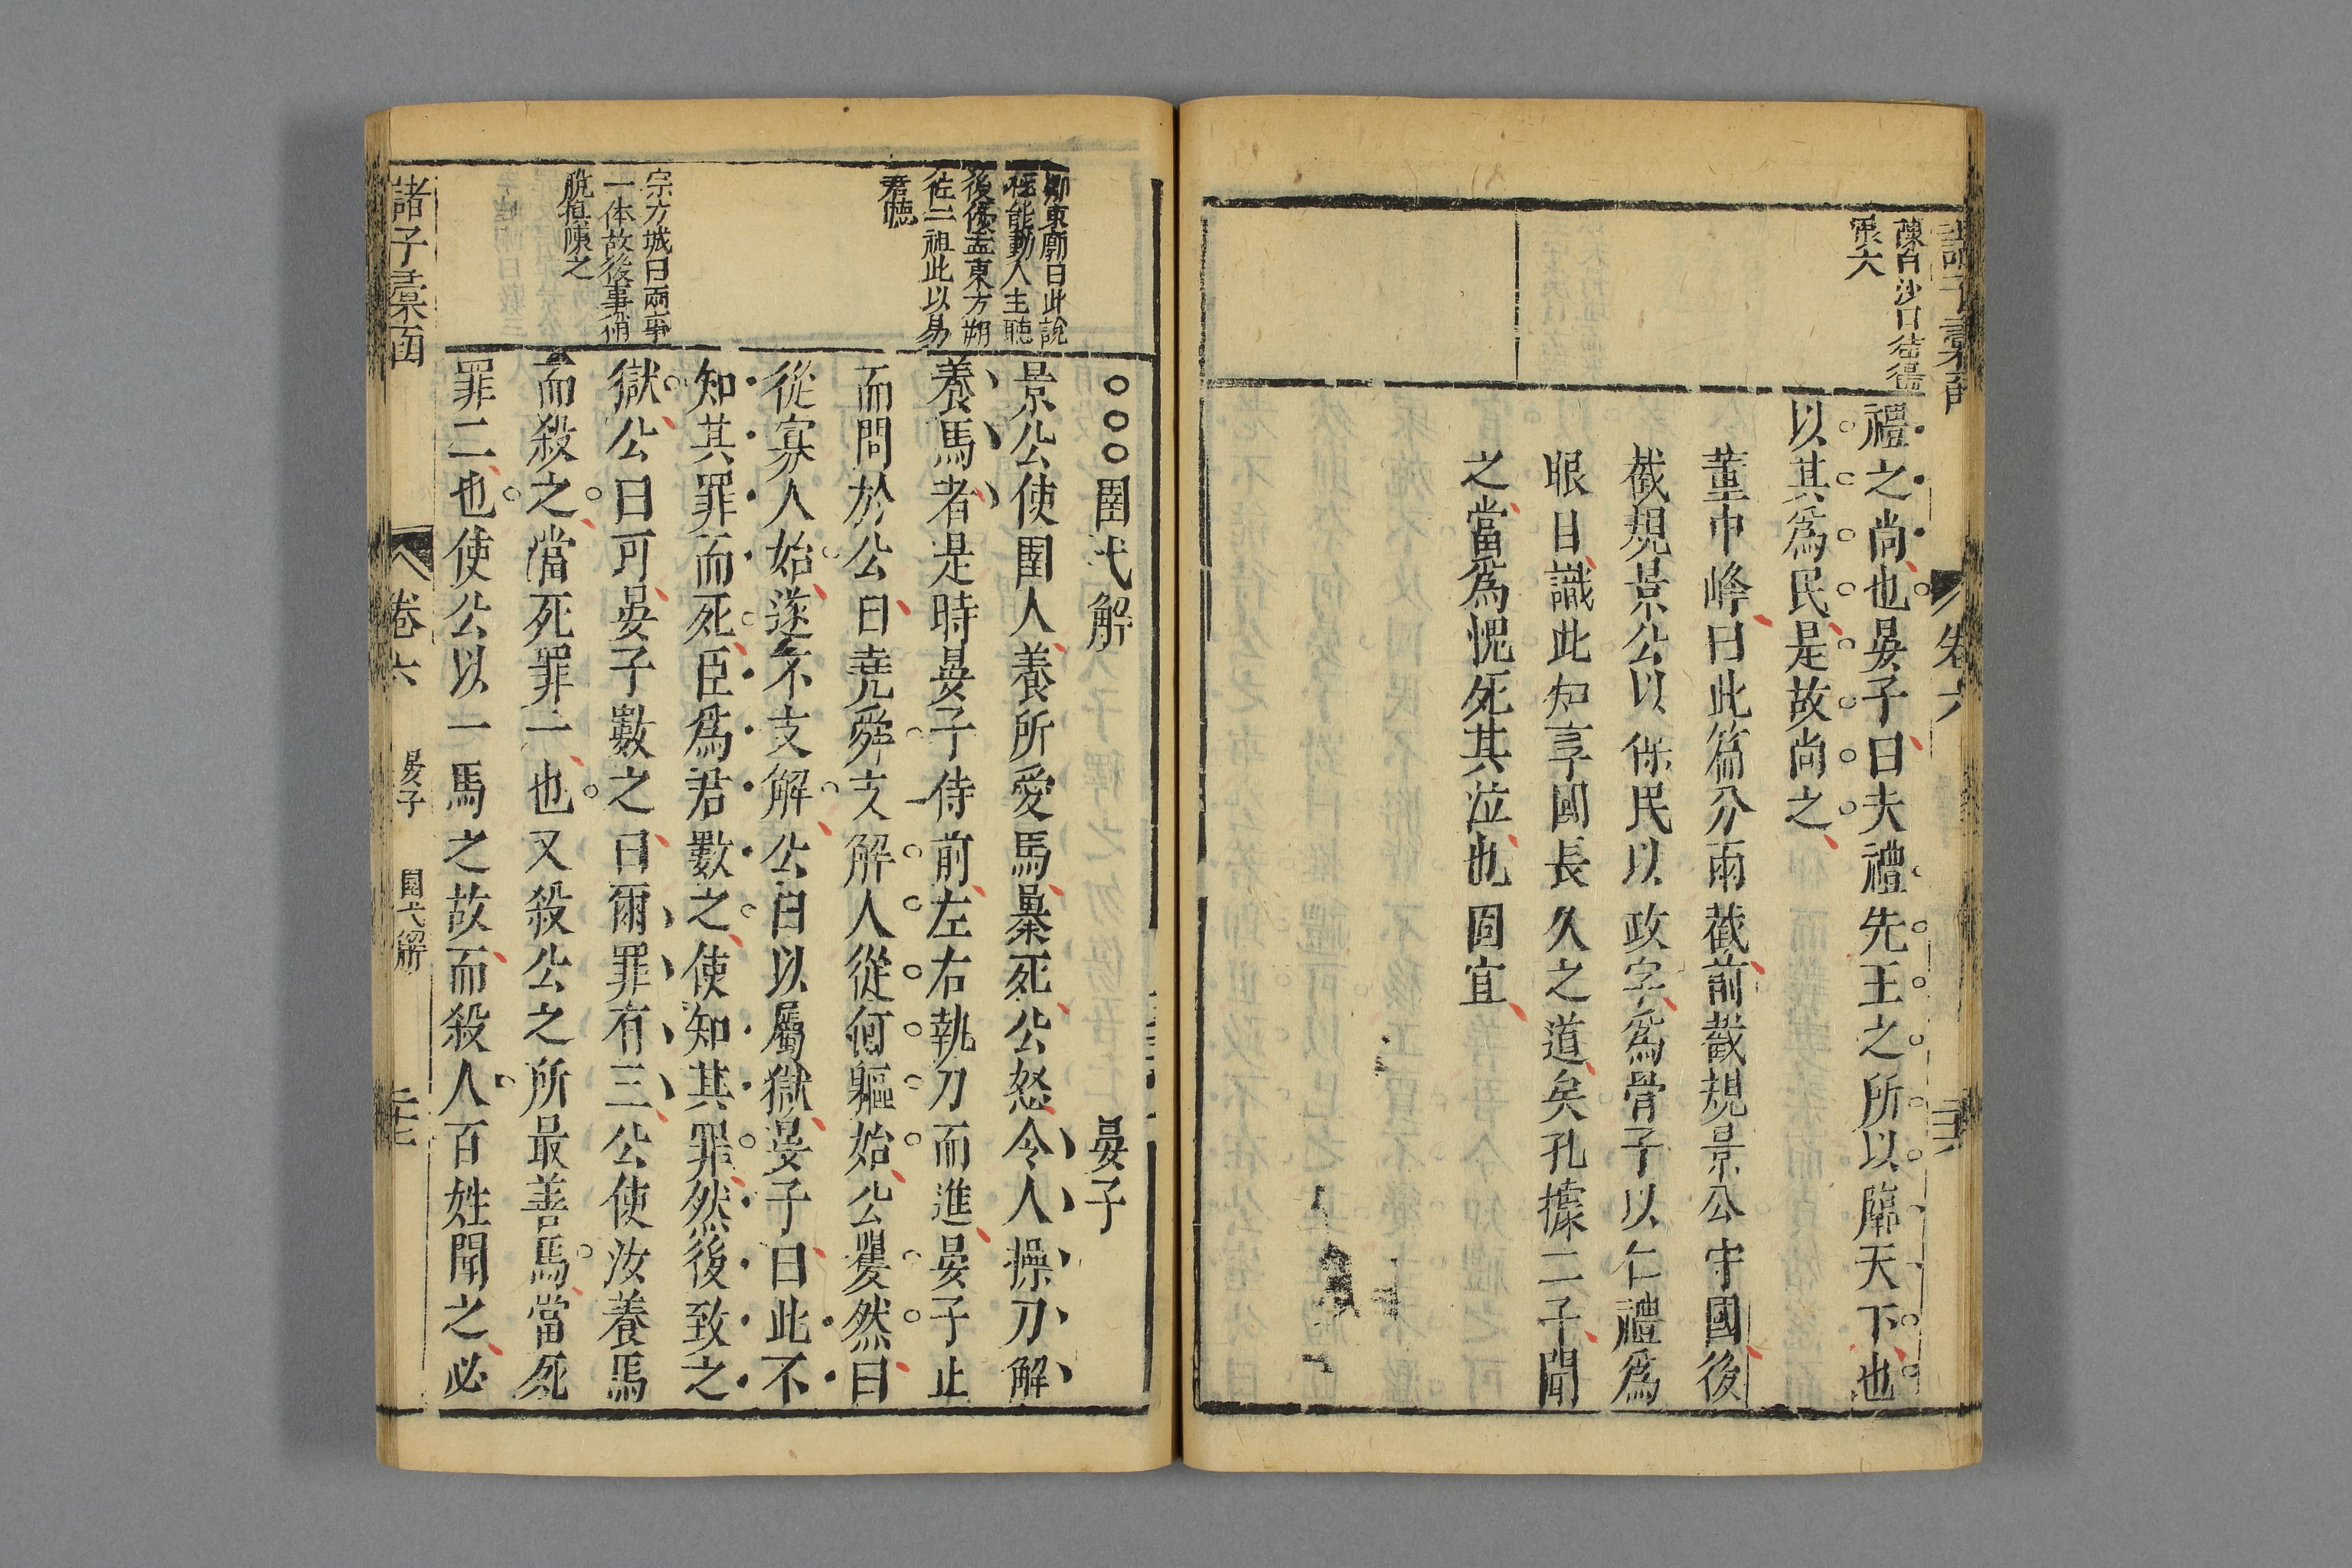 禮之尚也晏子曰夫禮先王之所以臨天下也
以其爲民是故尚之
董中峰曰此篇分兩截前截規景公守國後
截規景公以保民以政字爲骨子以仁禮爲
眼目識此知享國長久之道矣孔據二子聞
之當爲愧死其泣也固宜
卷六
諸子彙函
圉人解 晏子
卿東廓曰此說
極能動人主聽
後優孟東方朔
佐二祖此以易
君聽
景公使圉人養所愛馬暴死公怒令人操刀解
養馬者是時晏子侍前左右執刀而進晏子止
而問於公曰堯舜支解人從何軀始公矍然曰
從寡人始遂不支解公曰以屬獄晏子曰此不
知其罪而死臣爲君數之使知其罪然後致之
宗方城曰兩事
一体故後事俏
脫填陳之
獄公曰可晏子數之曰爾罪有三公使汝養馬
而殺之當死罪一也又殺公之所最善馬當死
罪二也使公以一馬之故而殺人百姓聞之必
諸子彙函
卷六
晏子